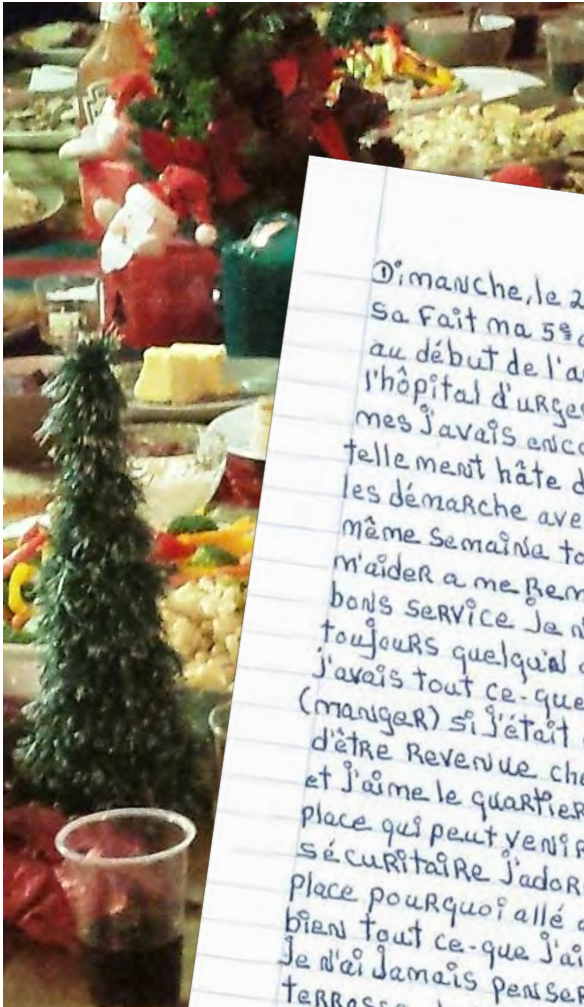 Dimanche, le 2
Sa Fait ma 5e
au début de l'a
l'hôpital d'urge
mes j'avais enco
tellement hâte d
les démarche ave
même semainia to
m'aider a me rem
bons service Je n
toujours quelqu'un
j'avais tout ce-que
(manger) si j'était
d'être revenue che
et j'aime le quartier
place qui peut venir
sécuritaire j'ador
place pourquoi allé
bien tout ce-que j'ai
Je n'ai Jamais penser
terrasse